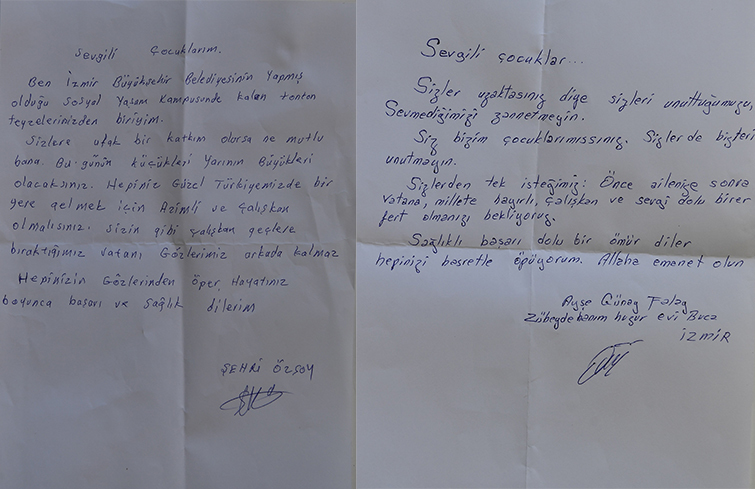 Sevgili Çocuklarım.
Ben İzmir Büyükşehir Belediyesinin Yapmış
olduğu Sosyal Yaşam Kampusunde kalan tonton
teyzelerinizden biriyim.
Sizlere ufak bir katkım olursa ne mutlu
bana. Bu günün küçükleri Yarının Büyükleri
olacaksınız. Hepiniz Güzel Türkiyemizde bir
yere gelmek için Azimli ve çalışkan
olmalısınız. Sizin gibi çalışkan geçlere
bıraktığımız vatanı Gözlerimiz arkada kalmaz
Hepinizin Gözlerinden öper, Hayatınız
boyunca başarı ve sağlık dilerim
ŞEHRİ ÖZSOY
Sevgili çocuklar...
Sizler uzaktasınız diye sizleri unuttuğumuzu,
Sevmediğimizi zannetmeyin.
Siz bizim çocuklarımıssınız. Sizler de bizleri
unutmayın.
Sizlerden tek isteğimiz: Önce ailenize sonra
vatana, millete hayırlı, çalışkan ve sevgi dolu birer
fert olmanızı bekliyoruz.
Sağlıklı başarı dolu bir ömür diler
hepinizi hasretle öpüyorum. Allaha emanet olun
Ayşe Günay
Zübeyde hanım huzur evi Buca
İZMİR